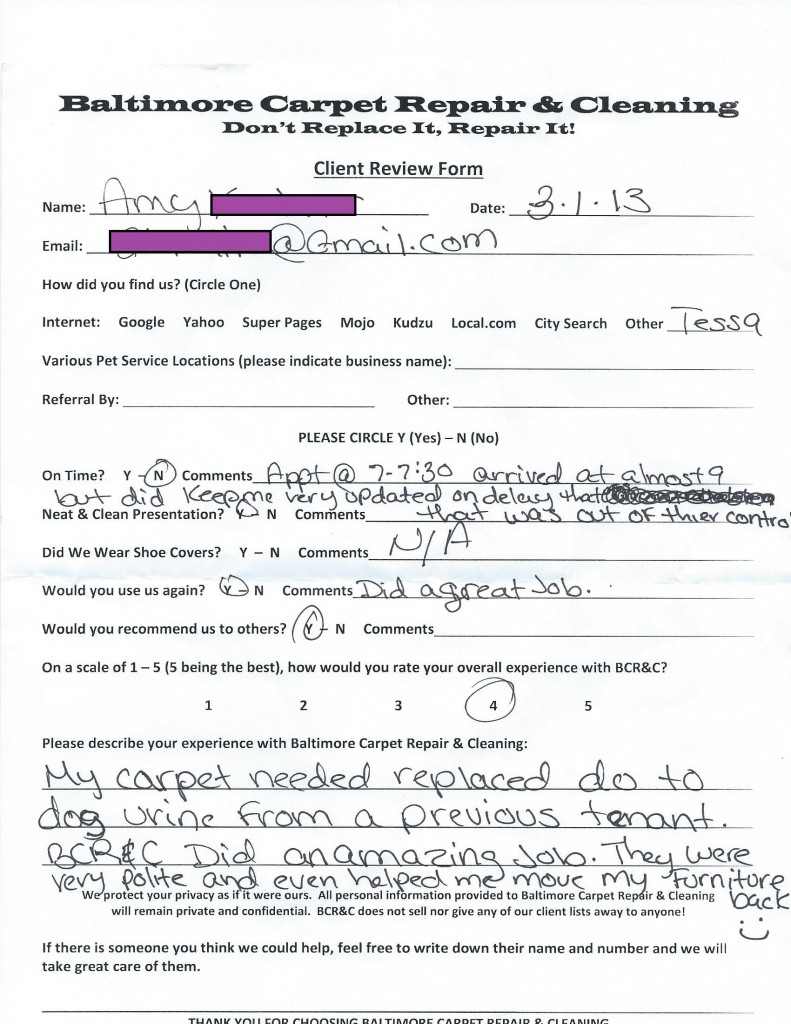 Baltimore Carpet Repair & Cleaning
Don't Replace It, Repair It!
Client Review Form
Name: Amy Date: 3.1.13
Email: @Gmail.com
How did you find us? (Circle One)
Internet: Google Yahoo Super Pages Mojo Kudzu Local.com City Search Other Tessa
Various Pet Service Locations (please indicate business name):
Referral By: Other:
PLEASE CIRCLE Y (Yes) – N (No)
On Time? Y – N Comments Appt @ 7-7:30 arrived at almost 9
but did Keep me very updated on delay that
Neat & Clean Presentation? N Comments that was out of thier control
Did We Wear Shoe Covers? Y – N Comments N/A
Would you use us again? Y – N Comments Did a great Job.
Would you recommend us to others? Y – N Comments
On a scale of 1 – 5 (5 being the best), how would you rate your overall experience with BCR&C?
1 2 3 4 5
Please describe your experience with Baltimore Carpet Repair & Cleaning:
My carpet needed replaced do to
dog urine from a previous tenant.
BCR&C Did an amazing Job. They were
very polite and even helped me move my Furniture
back
We protect your privacy as if it were ours. All personal information provided to Baltimore Carpet Repair & Cleaning
will remain private and confidential. BCR&C does not sell nor give any of our client lists away to anyone!
If there is someone you think we could help, feel free to write down their name and number and we will
take great care of them.
THANK YOU FOR CHOOSING BALTIMORE CARPET REPAIR & CLEANING